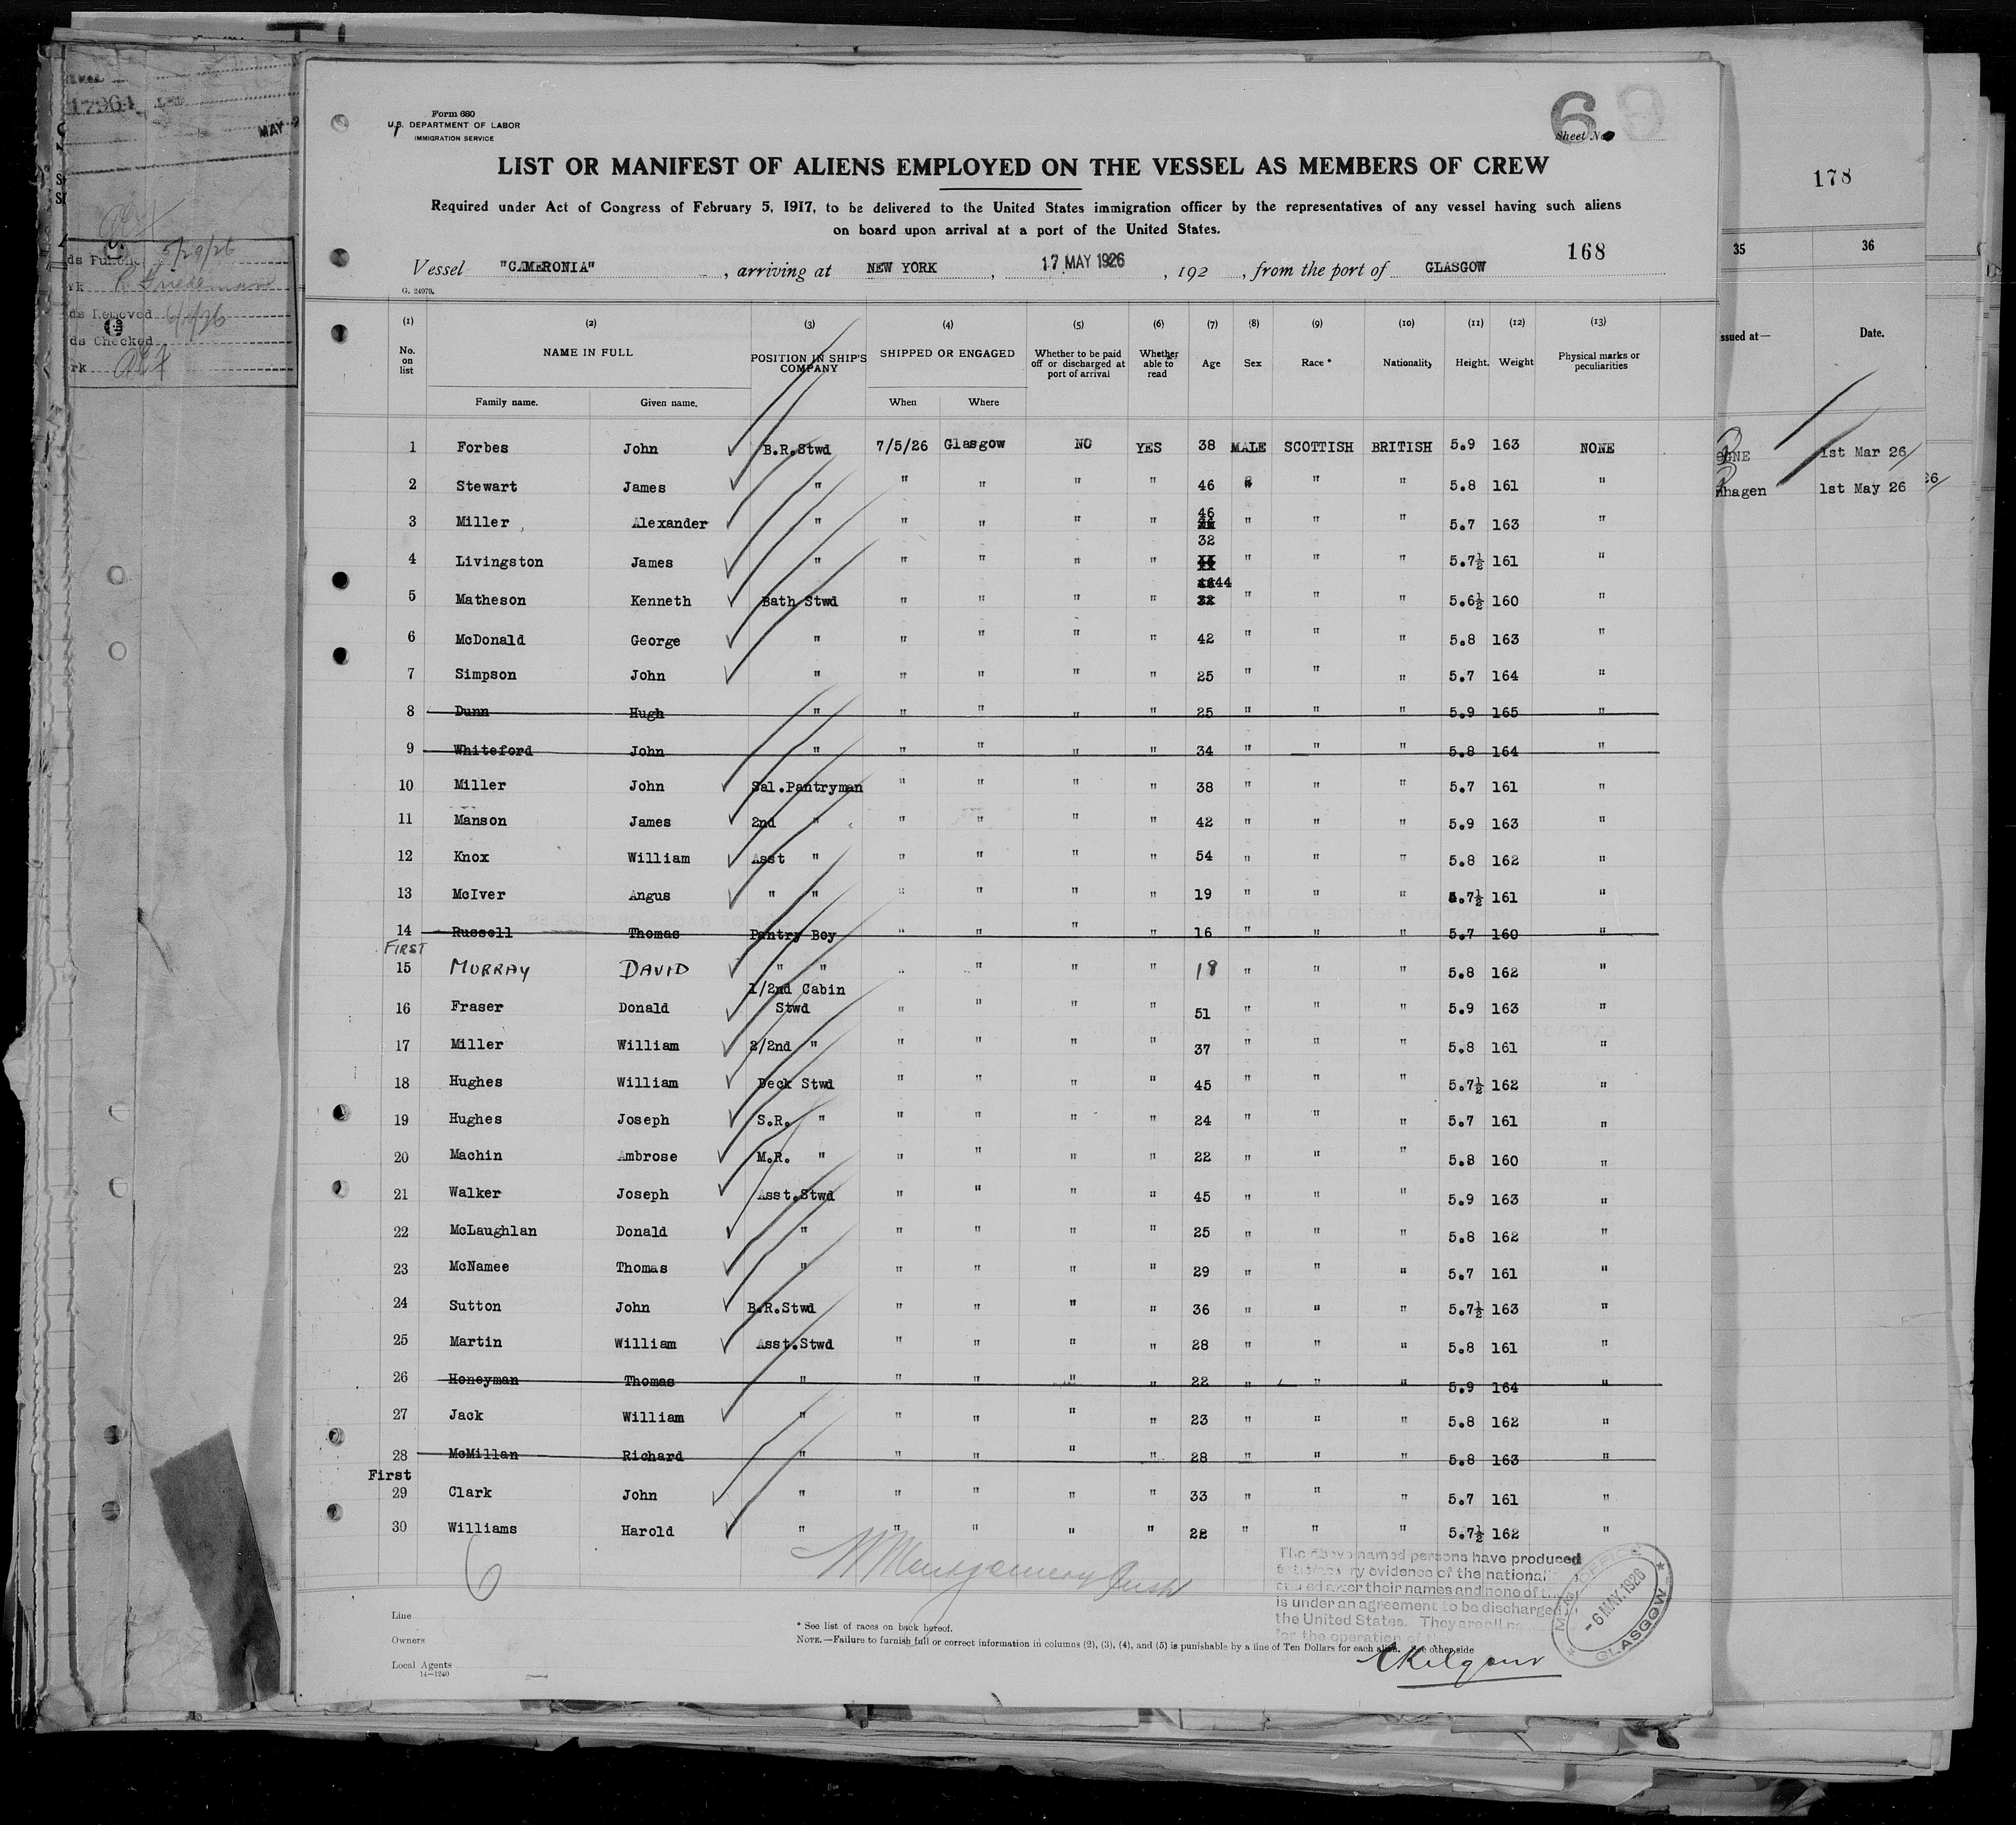 17964
MAY 2
5/29/26
ds Removed
ds Checked
Form 680
U.S. DEPARTMENT OF LABOR
IMMIGRATION SERVICE
6
Sheet No.
LIST OR MANIFEST OF ALIENS EMPLOYED ON THE VESSEL AS MEMBERS OF CREW
Required under Act of Congress of February 5, 1917, to be delivered to the United States immigration officer by the representatives of any vessel having such aliens
on board upon arrival at a port of the United States.
168
Vessel "CAMERONIA", arriving at NEW YORK, 17 MAY 1926, 192 , from the port of GLASGOW
G. 24979.
(1) (2) (3) (4) (5) (6) (7) (8) (9) (10) (11) (12) (13)
No. on list NAME IN FULL POSITION IN SHIP'S COMPANY SHIPPED OR ENGAGED Whether to be paid off or discharged at port of arrival Whether able to read Age Sex Race * Nationality Height. Weight Physical marks or peculiarities
Family name. Given name. When Where
1 Forbes John B.R.Stwd 7/5/26 Glasgow NO YES 38 MALE SCOTTISH BRITISH 5.9 163 NONE
2 Stewart James " " " " " 46 " " " 5.8 161 "
3 Miller Alexander " " " " " 46 " " " 5.7 163 "
4 Livingston James " " " " " 32 " " " 5.7½ 161 "
5 Matheson Kenneth Bath Stwd " " " " 44 " " " 5.6½ 160 "
6 McDonald George " " " " " 42 " " " 5.8 163 "
7 Simpson John " " " " " 25 " " " 5.7 164 "
8 Dunn Hugh " " " " " 25 " " " 5.9 165 "
9 Whiteford John " " " " " 34 " " " 5.8 164 "
10 Miller John Sal.Pantryman " " " " 38 " " " 5.7 161 "
11 Manson James 2nd " " " " " 42 " " " 5.9 163 "
12 Knox William Asst " " " " " 54 " " " 5.8 162 "
13 McIver Angus " " " " " " 19 " " " 5.7½ 161 "
14 Russell Thomas Pantry Boy " " " " 16 " " " 5.7 160 "
FIRST
15 MURRAY DAVID " " " " " " 18 " " " 5.8 162 "
1/2nd Cabin
16 Fraser Donald Stwd " " " " 51 " " " 5.9 163 "
17 Miller William 2/2nd " " " " " 37 " " " 5.8 161 "
18 Hughes William Deck Stwd " " " " 45 " " " 5.7½ 162 "
19 Hughes Joseph S.R. " " " " " 24 " " " 5.7 161 "
20 Machin Ambrose M.R. " " " " " 22 " " " 5.8 160 "
21 Walker Joseph Asst.Stwd " " " " 45 " " " 5.9 163 "
22 McLaughlan Donald " " " " " 25 " " " 5.8 162 "
23 McNamee Thomas " " " " " 29 " " " 5.7 161 "
24 Sutton John B.R.Stwd " " " " 36 " " " 5.7½ 163 "
25 Martin William Asst.Stwd " " " " 28 " " " 5.8 161 "
26 Honeyman Thomas " " " " " 22 " " " 5.9 164 "
27 Jack William " " " " " 23 " " " 5.8 162 "
28 McMillan Richard " " " " " 28 " " " 5.8 163 "
First
29 Clark John " " " " " 33 " " " 5.7 161 "
30 Williams Harold " " " " " 22 " " " 5.7½ 162 "
6
The above named persons have produced
satisfactory evidence of the national
stated after their names and none of
is under an agreement to be discharged
the United States. They are all
for the operation of
OFFICE
-6 MAY.1926
GLASGOW
Line
Owners
Local Agents
14-1240
* See list of races on back hereof.
NOTE.—Failure to furnish full or correct information in columns (2), (3), (4), and (5) is punishable by a fine of Ten Dollars for each alien. See other side
178
35 36
ssued at— Date.
OGNE 1st Mar 26
nhagen 1st May 26